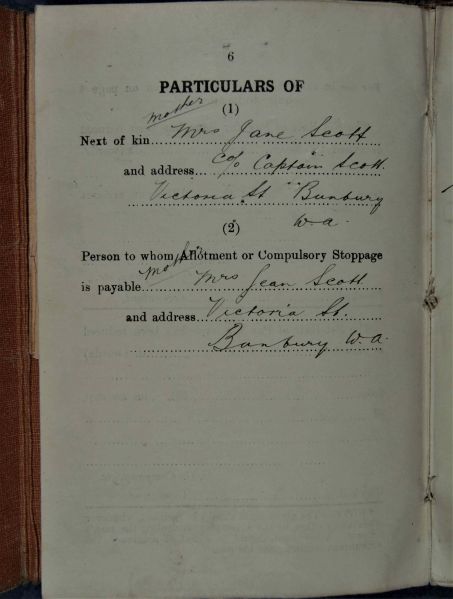 6
PARTICULARS OF
(1)
mother
Next of kin Mrs Jane Scott
and address c/o Captain Scott
Victoria St Bunbury
W.A.
(2)
Person to whom Allotment or Compulsory Stoppage
mother
is payable Mrs Jean Scott
and address Victoria St.
Bunbury W.A.